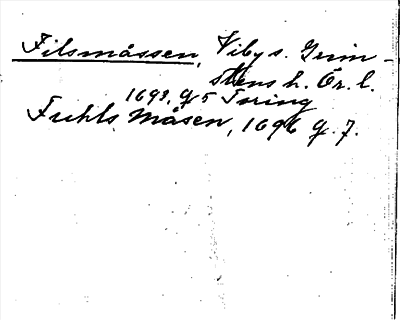 Filsmåssen, Viby s. Grim-
stens h. Ör. l.
1693, G 5
Fuhls Måsen, 1696 G. 7.